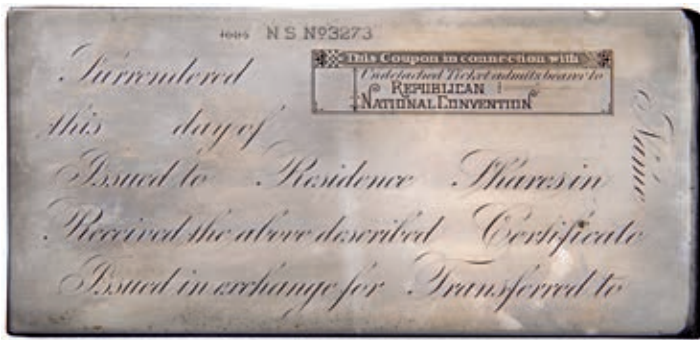 N S Nº3273
Surrendered
This Coupon in connection with
Undetached Ticket admits bearer to
REPUBLICAN
NATIONAL CONVENTION
this day of
Name
Issued to Residence Shares in
Received the above described Certificate
Issued in exchange for Transferred to